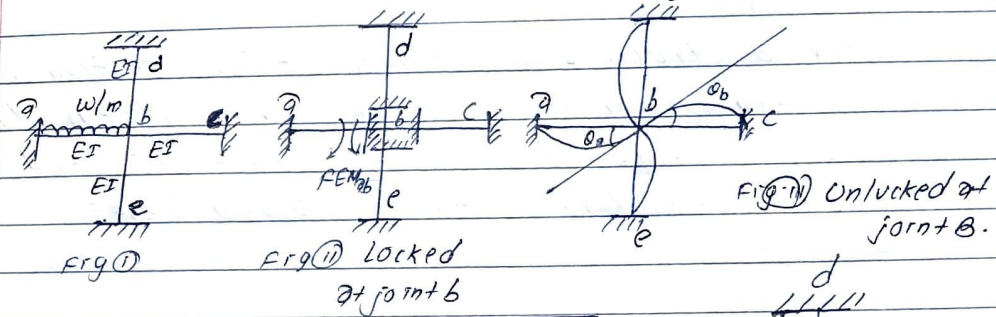 d
EI
a
w/m
b
c
EI
EI
EI
e
Fig (i)
d
a
b
c
FEMab
e
Fig (ii) Locked
at joint b
a
b
θb
θa
c
e
Fig (iii) Unlucked at
joint B.
d